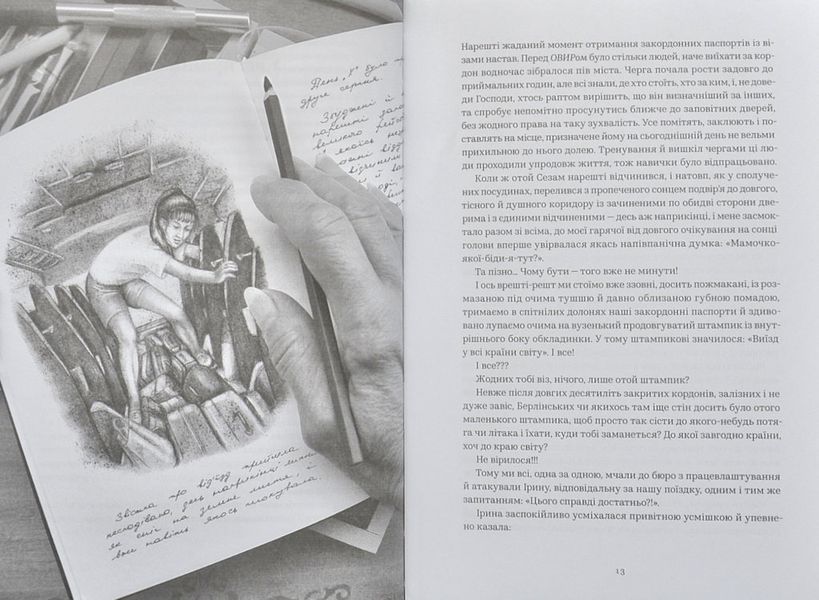 День "Х" було
друге серпня.
Збуджені й
нарешті
великого
якоїсь
Звістка про від'їзд прийшла
несподівано, десь наприкінці
як сніг на зелене листя, й
вже навіть якось
Нарешті жаданий момент отримання закордонних паспортів із ві-
зами настав. Перед ОВИРом було стільки людей, наче виїхати за кор-
дон водночас зібралося пів міста. Черга почала рости задовго до
приймальних годин, але всі знали, де хто стоїть, хто за ким, і, не дове-
ди Господи, хтось раптом вирішить, що він визначніший за інших,
та спробує непомітно просунутись ближче до заповітних дверей,
без жодного права на таку зухвалість. Усе помітять, заклюють і по-
ставлять на місце, призначене йому на сьогоднішній день не вельми
прихильною до нього долею. Тренування й вишкіл чергами ці лю-
ди проходили упродовж життя, тож навички було відпрацьовано.
Коли ж отой Сезам нарешті відчинився, і натовп, як у сполуче-
них посудинах, перелився з пропеченого сонцем подвір'я до довгого,
тісного й душного коридору із зачиненими по обидві сторони две-
рима і з єдиними відчиненими — десь аж наприкінці, і мене засмок-
тало разом зі всіма, до моєї гарячої від довгого очікування на сонці
голови вперше увірвалася якась напівпанічна думка: «Мамочко-
якої-біди-я-тут?».
Та пізно... Чому бути — того вже не минути!
І ось врешті-решт ми стоїмо вже ззовні, досить пожмакані, із роз-
мазаною під очима тушшю й давно облизаною губною помадою,
тримаємо в спітнілих долонях наші закордонні паспорти й здиво-
вано лупаємо очима на вузенький продовгуватий штампик із внут-
рішнього боку обкладинки. У тому штампикові значилося: «Виїзд
у всі країни світу». І все!
І все???
Жодних тобі віз, нічого, лише отой штампик?
Невже після довгих десятиліть закритих кордонів, залізних і не
дуже завіс, Берлінських чи якихось там іще стін досить було отого
маленького штампика, щоб просто так сісти до якого-небудь потя-
га чи літака і їхати, куди тобі заманеться? До якої завгодно країни,
хоч до краю світу?
Не вірилося!!!
Тому ми всі, одна за одною, мчали до бюро з працевлаштування
й атакували Ірину, відповідальну за нашу поїздку, одним і тим же
запитанням: «Цього справді достатньо?!».
Ірина заспокійливо усміхалася привітною усмішкою й упевне-
но казала:
13